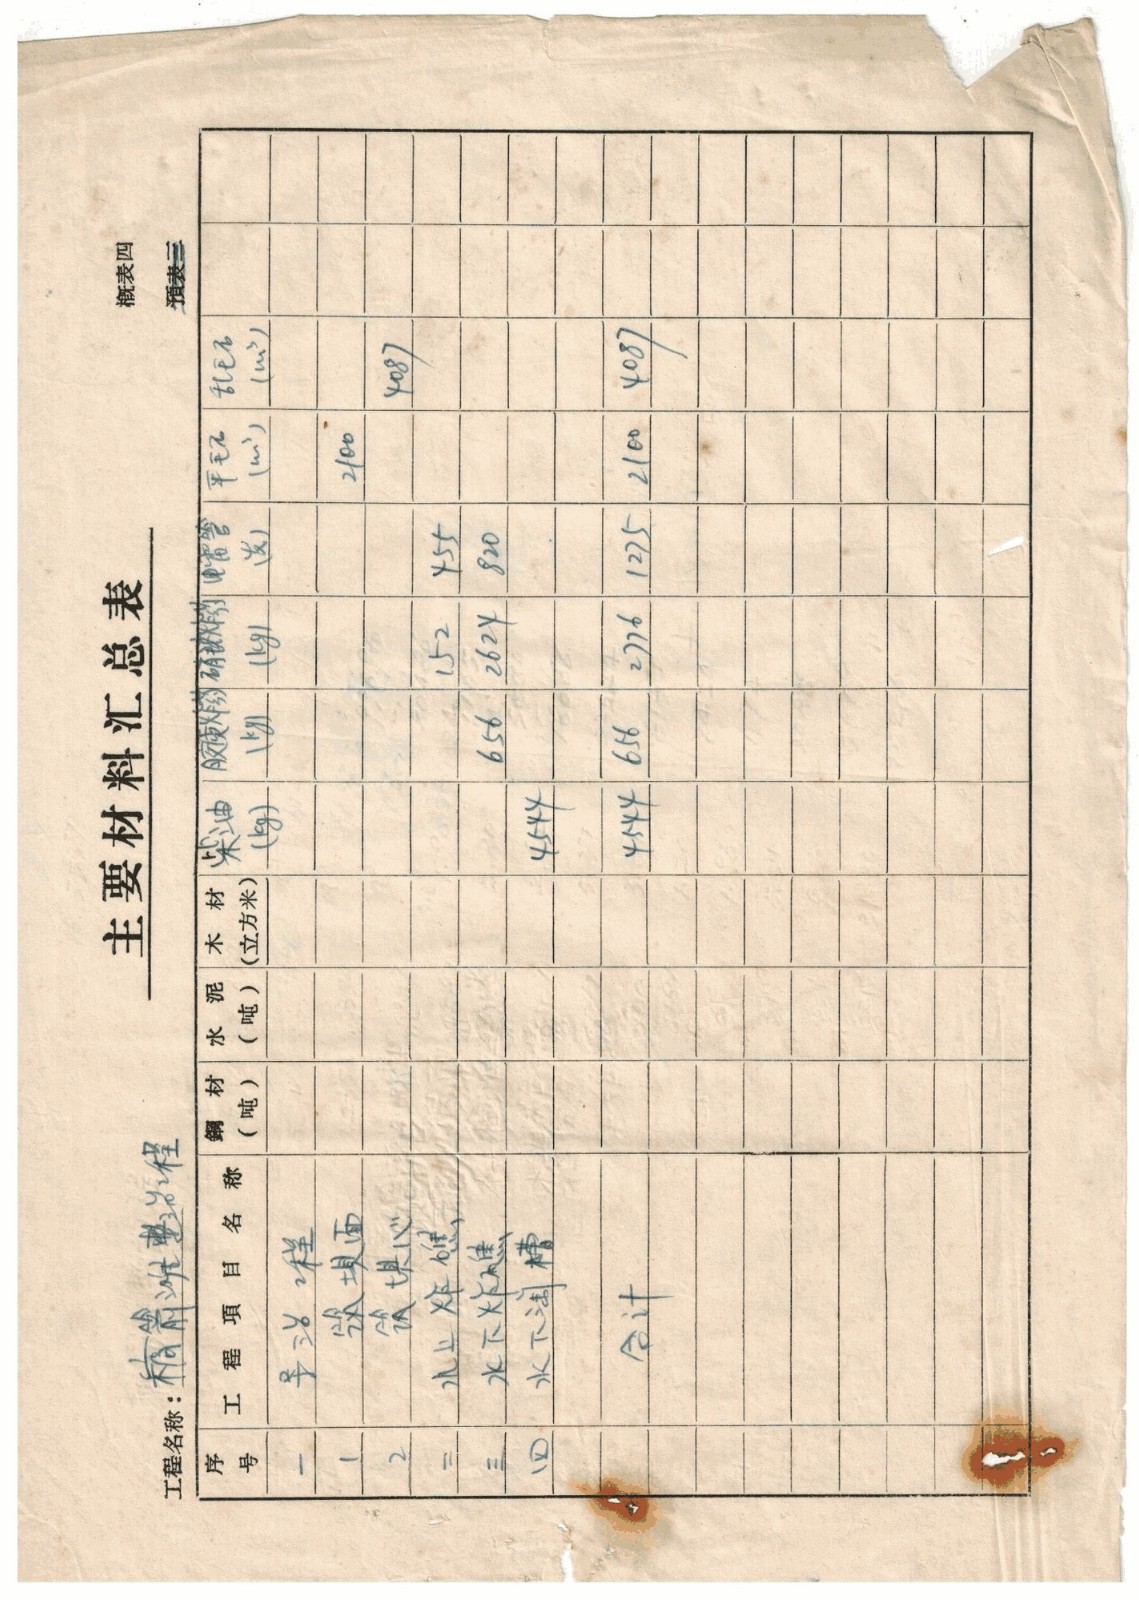 主要材料汇总表
概表四
預表三
工程名称：滩整治工程
序号 工程項目名称 鋼材(吨) 水泥(吨) 木材(立方米) 柴油(kg) 胶质炸药(kg) 硝铵炸药(kg) 电雷管(发) 平毛石(m³) 乱毛石(m³)
一 导治工程
1 筑坝面 2100
2 筑坝心 4087
二 水上炸礁 152 455
三 水下炸礁 656 2624 820
四 水下清槽 4544
合计 4544 656 2776 1275 2100 4087